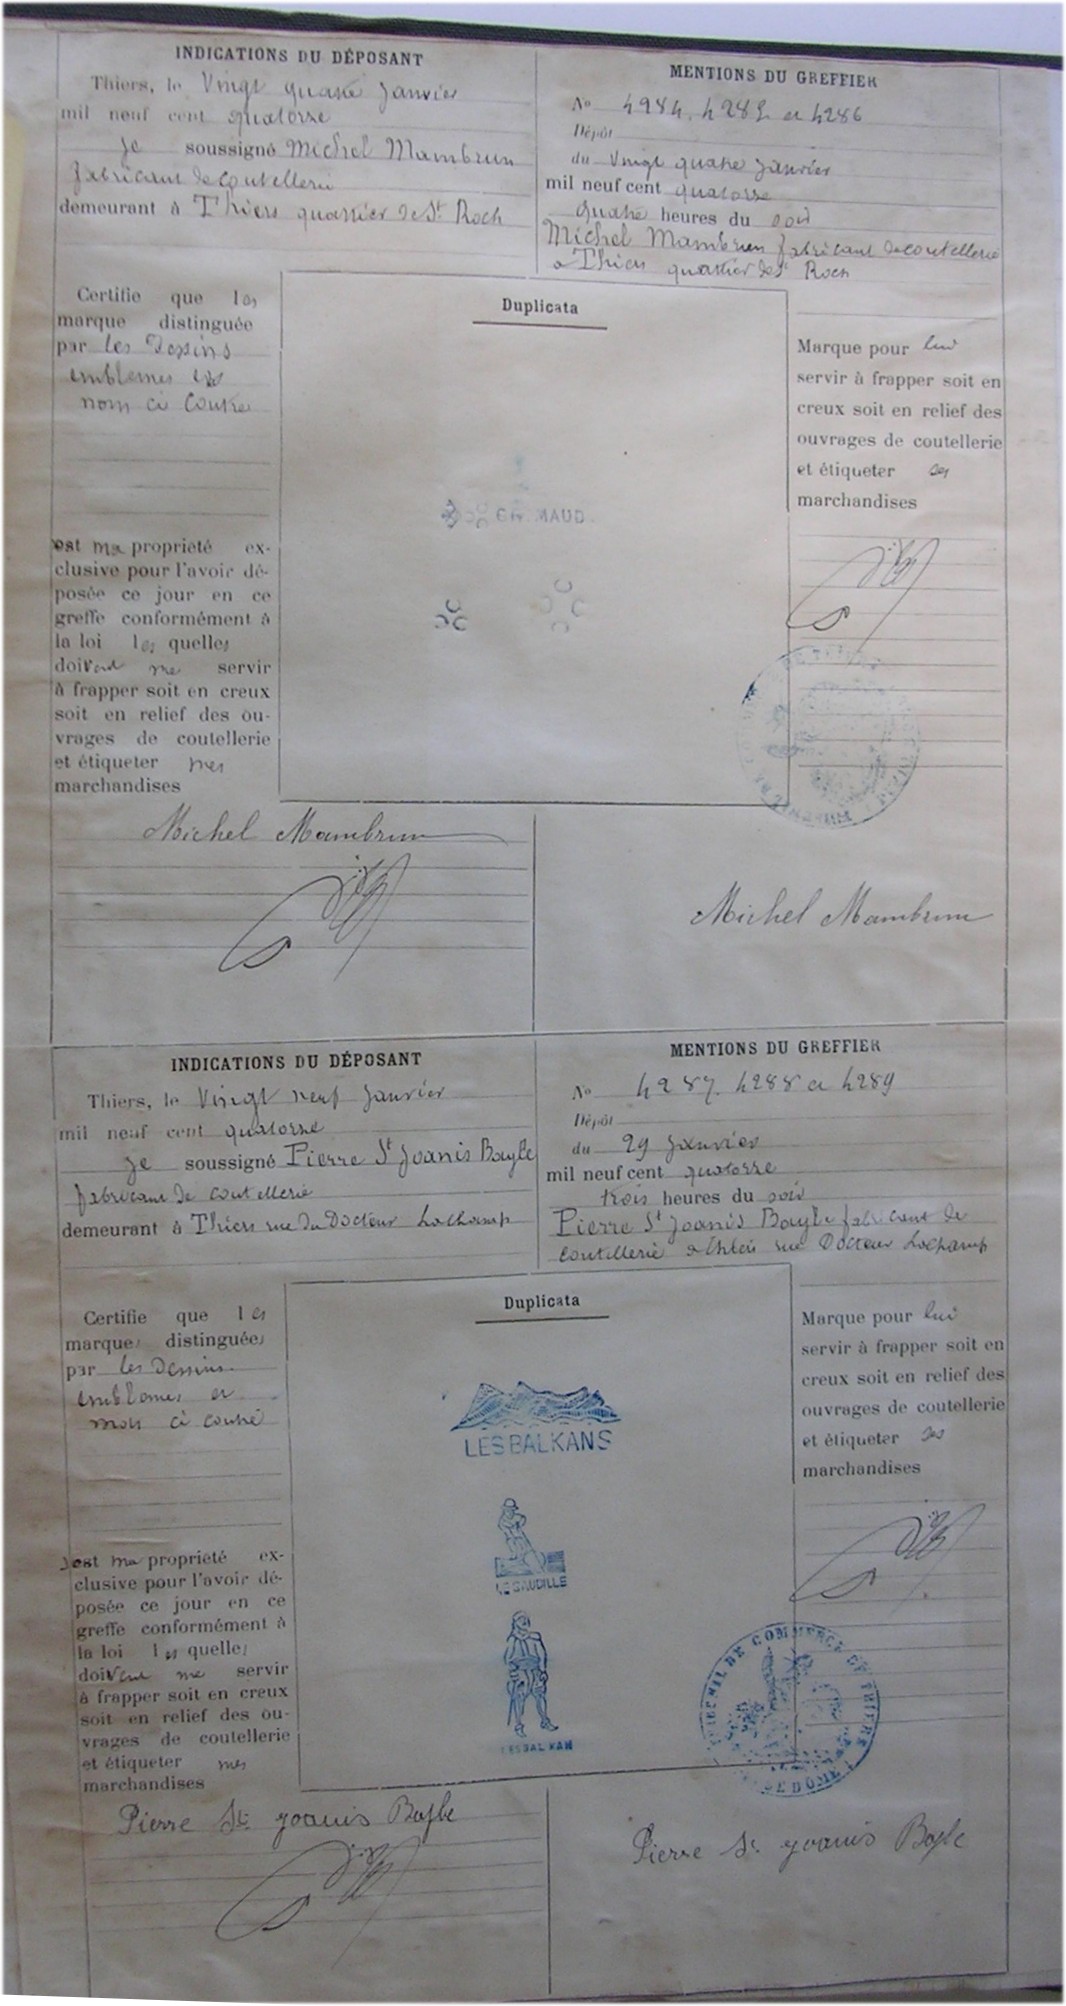 INDICATIONS DU DÉPOSANT
Thiers, le Vingt quatre Janvier
mil neuf cent quatorze
Je soussigné Michel Mambrun
fabricant de coutellerie
demeurant à Thiers quartier de St Roch
MENTIONS DU GREFFIER
No 4284, 4285 et 4286
Dépôt
du Vingt quatre Janvier
mil neuf cent quatorze
quatre heures du soir
Michel Mambrun fabricant de coutellerie
a Thiers quartier de St Roch
Certifie que les
marque distinguée
par les Dessins
emblemes et
nom ci contre
est ma propriété ex-
clusive pour l'avoir dé-
posée ce jour en ce
greffe conformément à
la loi les quelles
doivent me servir
à frapper soit en creux
soit en relief des ou-
vrages de coutellerie
et étiqueter mes
marchandises
Duplicata
MAUD
Marque pour lui
servir à frapper soit en
creux soit en relief des
ouvrages de coutellerie
et étiqueter ses
marchandises
Michel Mambrun
Michel Mambrun
INDICATIONS DU DÉPOSANT
Thiers, le Vingt neuf Janvier
mil neuf cent quatorze
Je soussigné Pierre St Joanis Bayle
fabricant de coutellerie
demeurant à Thiers rue du Docteur Lachamp
MENTIONS DU GREFFIER
No 4287, 4288 et 4289
Dépôt
du 29 Janvier
mil neuf cent quatorze
trois heures du soir
Pierre St Joanis Bayle fabricant de
coutellerie a Thiers rue Docteur Lachamp
Certifie que les
marques distinguées
par les Dessins
emblemes et
nom ci contre
est ma propriété ex-
clusive pour l'avoir dé-
posée ce jour en ce
greffe conformément à
la loi les quelles
doivent me servir
à frapper soit en creux
soit en relief des ou-
vrages de coutellerie
et étiqueter mes
marchandises
Duplicata
LES BALKANS
LE GAUDILLE
LES BALKAN
Marque pour lui
servir à frapper soit en
creux soit en relief des
ouvrages de coutellerie
et étiqueter ses
marchandises
TRIBUNAL DE COMMERCE DE THIERS
DE DÔME
Pierre St Joanis Bayle
Pierre St Joanis Bayle